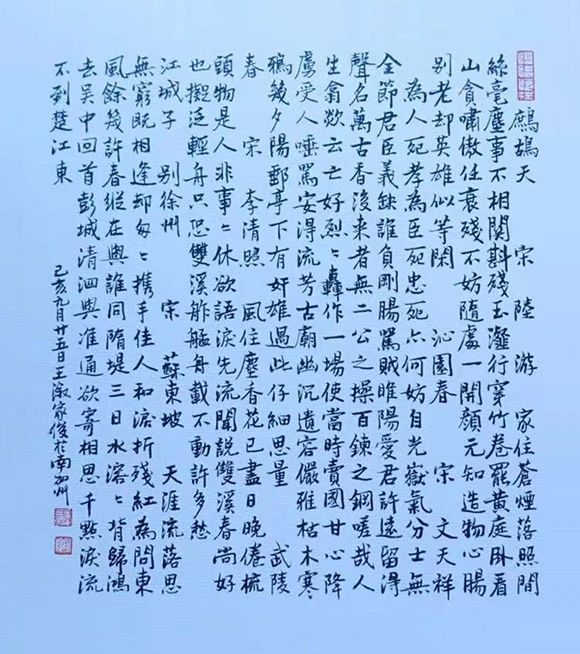 鷓鴣天 宋 陸 游 家住蒼煙落照間
絲毫塵事不相關斟殘玉瀣行穿竹卷罷黃庭卧看
山貪嘯傲任衰殘不妨隨處一開顏元知造物心腸
別老却英雄似等閑 沁園春 宋 文天祥
為人死孝為臣死忠死亦何妨自光嶽氣分士無
全節君臣義缺誰負剛腸罵賊睢陽愛君許遠留得
聲名萬古香後來者無二公之操百鍊之鋼嗟哉人
生翕欻云亡好烈〻轟〻作一場使當時賣國甘心降
虜受人唾罵安得流芳古廟幽沉遺容儼雅枯木寒
鴉幾夕陽郵亭下有奸雄過此仔細思量 武陵
春 宋 李清照 風住塵香花已盡日晚倦梳
頭物是人非事〻休欲語淚先流聞說雙溪春尚好
也擬泛輕舟只恐雙溪舴艋舟載不動許多愁
江城子 別徐州 宋 蘇東坡 天涯流落思
無窮既相逢却匆〻攜手佳人和淚折殘紅為問東
風餘幾許春縱在與誰同隋堤三日水溶〻背歸鴻
去吳中回首彭城清泗與淮通欲寄相思千點淚流
不到楚江東
己亥九月廿五日王家俊於南加州